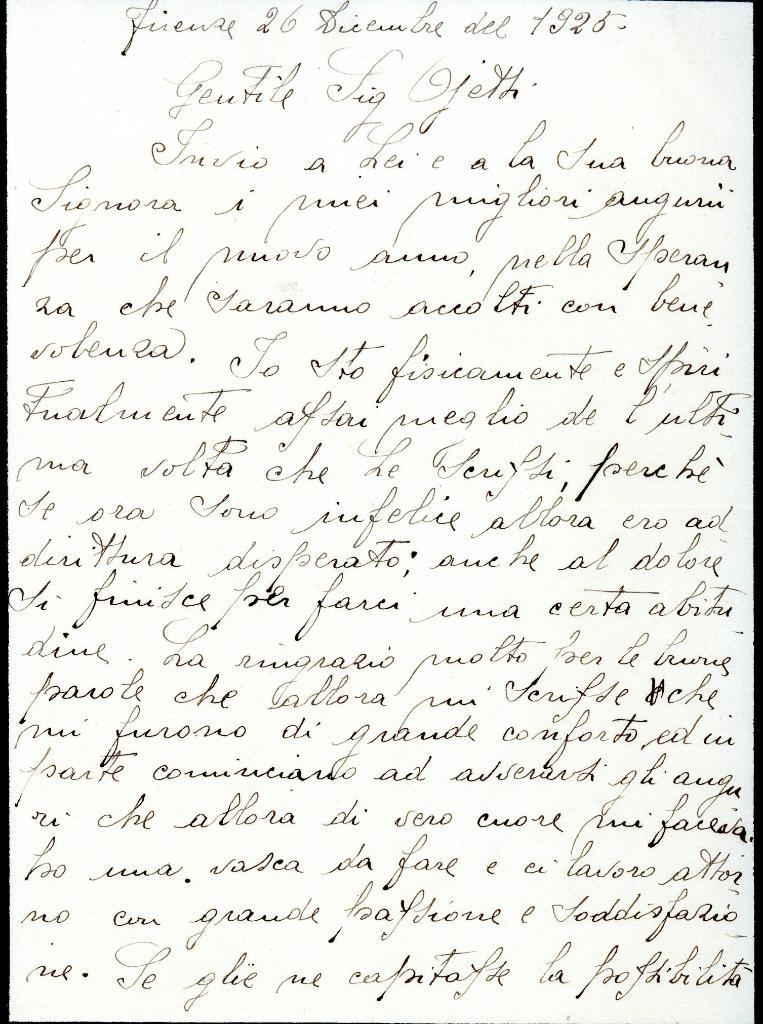 Firenze 26 Dicembre del 1925.
Gentile Sig Ojetti
Invio a Lei e a la Sua buona
Signora i miei migliori augurii
per il nuovo anno, nella Speran
za che Saranno accolti con bene
volenza. Io Sto fisicamente e Spiri
tualmente assai meglio de l'ulti
ma volta che Le Scrissi, perchè
Se ora Sono infelice allora ero ad
dirittura disperato; anche al dolore
Si finisce per farci una certa abitu
dine. La ringrazio molto per le buone
parole che allora mi Scrisse che
mi furono di grande conforto, ed in
parte cominciano ad avverarsi gli augu
ri che allora di vero cuore mi faceva.
ho una vasca da fare e ci lavoro attor
no con grande passione e Soddisfazio
ne. Se gliè ne capitasse la possibilità